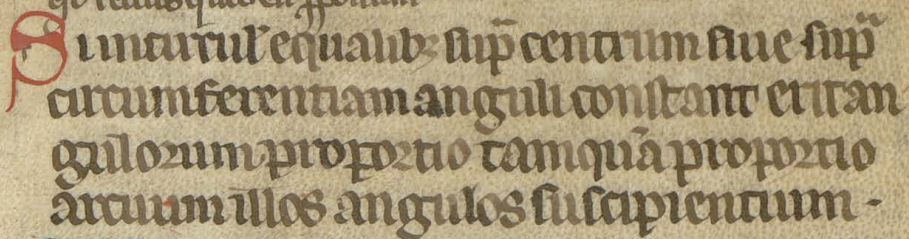 Si in circul̄ equalibꝫ sup̄ centrum siue sup̄
circumferentiam anguli constant erit an
gulorum proportio tamquā proportio
arcuum illos angulos suscipientium .